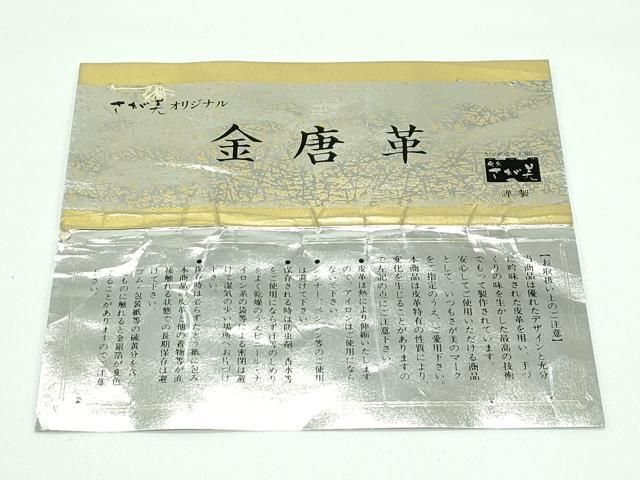 さが美 オリジナル
金唐革
さが美
謹製
【お取扱い上のご注意】
当商品は優れたデザインと充分
に吟味された皮革を用い、手づ
くりの味を生かした最高の技術
でもって製作されています。
安心してご使用いただける商品
として、いつもさが美のマーク
をご指定のうえ、ご愛用下さい。
本商品は皮革特有の性質により
変化を生じることがありますの
で左記の点にご注意下さい。
●皮革は熱により伸縮いたします
ので、アイロンはご使用になら
ないで下さい。
●シンナー、ベンジン等のご使用
は避けて下さい。
●保存される時は防虫剤、香水等
をご使用にならず汗等のしめり
をよく乾燥のうえビニール・ナ
イロン系の袋等による密閉は避
けて湿気の少い場所へお片づけ
下さい。
●保存時は必ずたとう紙に包み
本商品の皮革と他の着物等が直
接触れる状態での長期保存は避
けて下さい。
ゴム・包装紙等の硫黄分を含
むものに触れると金銀箔が変色
することがありますのでご注意
下さい。